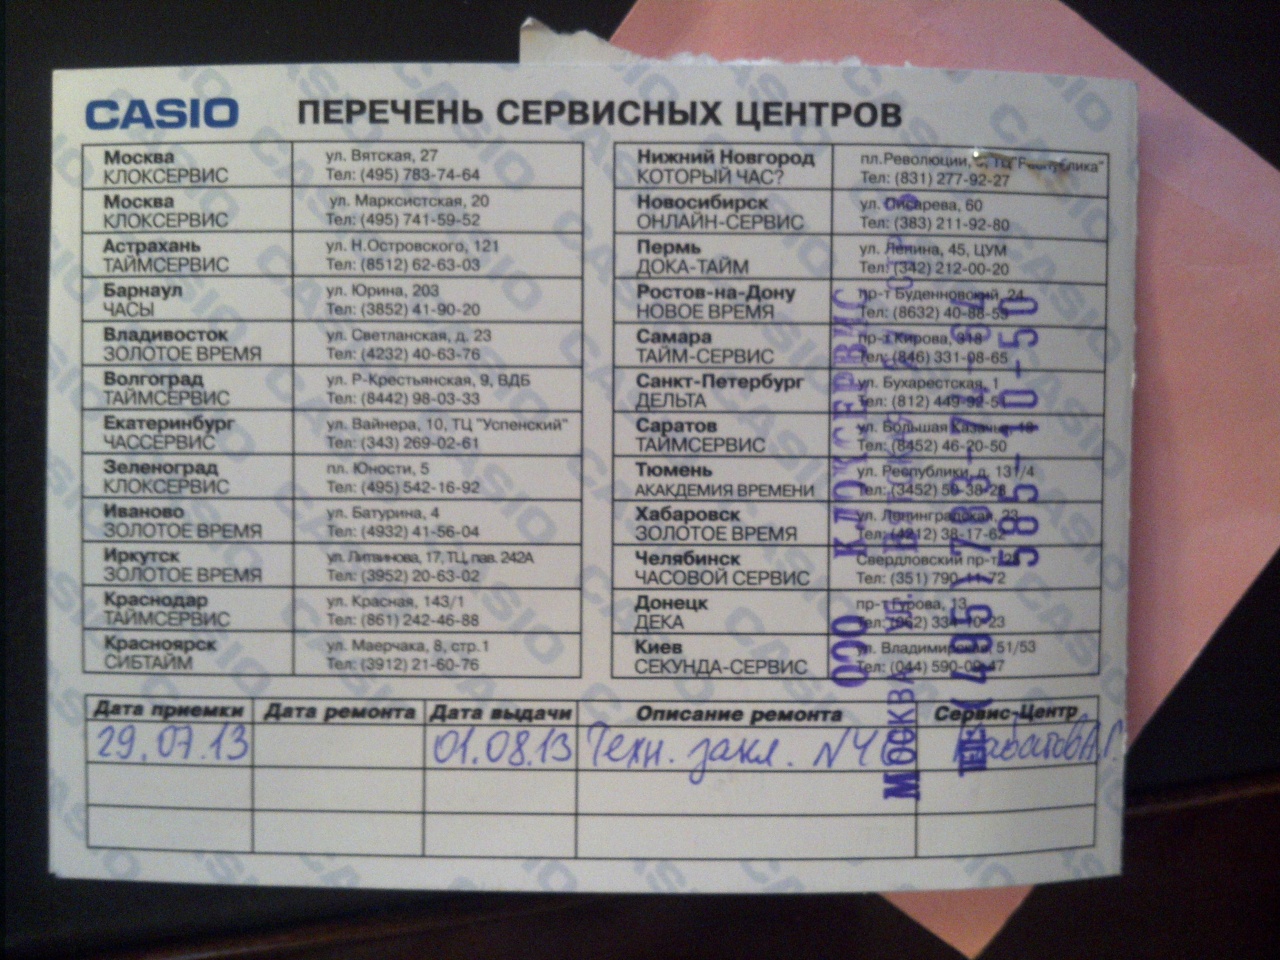 CASIO ПЕРЕЧЕНЬ СЕРВИСНЫХ ЦЕНТРОВ
Москва ул. Вятская, 27
КЛОКСЕРВИС Тел: (495) 783-74-64
Москва ул. Марксистская, 20
КЛОКСЕРВИС Тел: (495) 741-59-52
Астрахань ул. Н.Островского, 121
ТАЙМСЕРВИС Тел: (8512) 62-63-03
Барнаул ул. Юрина, 203
ЧАСЫ Тел: (3852) 41-90-20
Владивосток ул. Светланская, д. 23
ЗОЛОТОЕ ВРЕМЯ Тел: (4232) 40-63-76
Волгоград ул. Р-Крестьянская, 9, ВДБ
ТАЙМСЕРВИС Тел: (8442) 98-03-33
Екатеринбург ул. Вайнера, 10, ТЦ "Успенский"
ЧАССЕРВИС Тел: (343) 269-02-61
Зеленоград пл. Юности, 5
КЛОКСЕРВИС Тел: (495) 542-16-92
Иваново ул. Батурина, 4
ЗОЛОТОЕ ВРЕМЯ Тел: (4932) 41-56-04
Иркутск ул. Литвинова, 17, ТЦ, пав. 242А
ЗОЛОТОЕ ВРЕМЯ Тел: (3952) 20-63-02
Краснодар ул. Красная, 143/1
ТАЙМСЕРВИС Тел: (861) 242-46-88
Красноярск ул. Маерчака, 8, стр.1
СИБТАЙМ Тел: (3912) 21-60-76
Нижний Новгород пл.Революции, ТЦ "Республика"
КОТОРЫЙ ЧАС? Тел: (831) 277-92-27
Новосибирск ул. Писарева, 60
ОНЛАЙН-СЕРВИС Тел: (383) 211-92-80
Пермь ул. Ленина, 45, ЦУМ
ДОКА-ТАЙМ Тел: (342) 212-00-20
Ростов-на-Дону пр-т Буденновский, 24
НОВОЕ ВРЕМЯ Тел: (8632) 40-88-53
Самара пр-т Кирова, 318
ТАЙМ-СЕРВИС Тел: (846) 331-08-65
Санкт-Петербург ул. Бухарестская, 1
ДЕЛЬТА Тел: (812) 449-92-51
Саратов ул. Большая Казачья,
ТАЙМСЕРВИС Тел: (8452) 46-20-50
Тюмень ул. Республики, д. 131/4
АКАКДЕМИЯ ВРЕМЕНИ Тел: (3452) 50-38-28
Хабаровск ул. Ленинградская, 23
ЗОЛОТОЕ ВРЕМЯ Тел: (4212) 38-17-62
Челябинск Свердловский пр-т,
ЧАСОВОЙ СЕРВИС Тел: (351) 790-11-72
Донецк пр-т Гурова, 13
ДЕКА Тел: (062) 334-10-23
Киев ул. Владимирская, 51/53
СЕКУНДА-СЕРВИС Тел: (044) 590-09-47
ООО КЛОКСЕРВИС
МОСКВА
ТЕЛ: (495) 783-74-64
585-10-50
Дата приемки Дата ремонта Дата выдачи Описание ремонта Сервис-Центр
29.07.13 01.08.13 Техн. закл. N